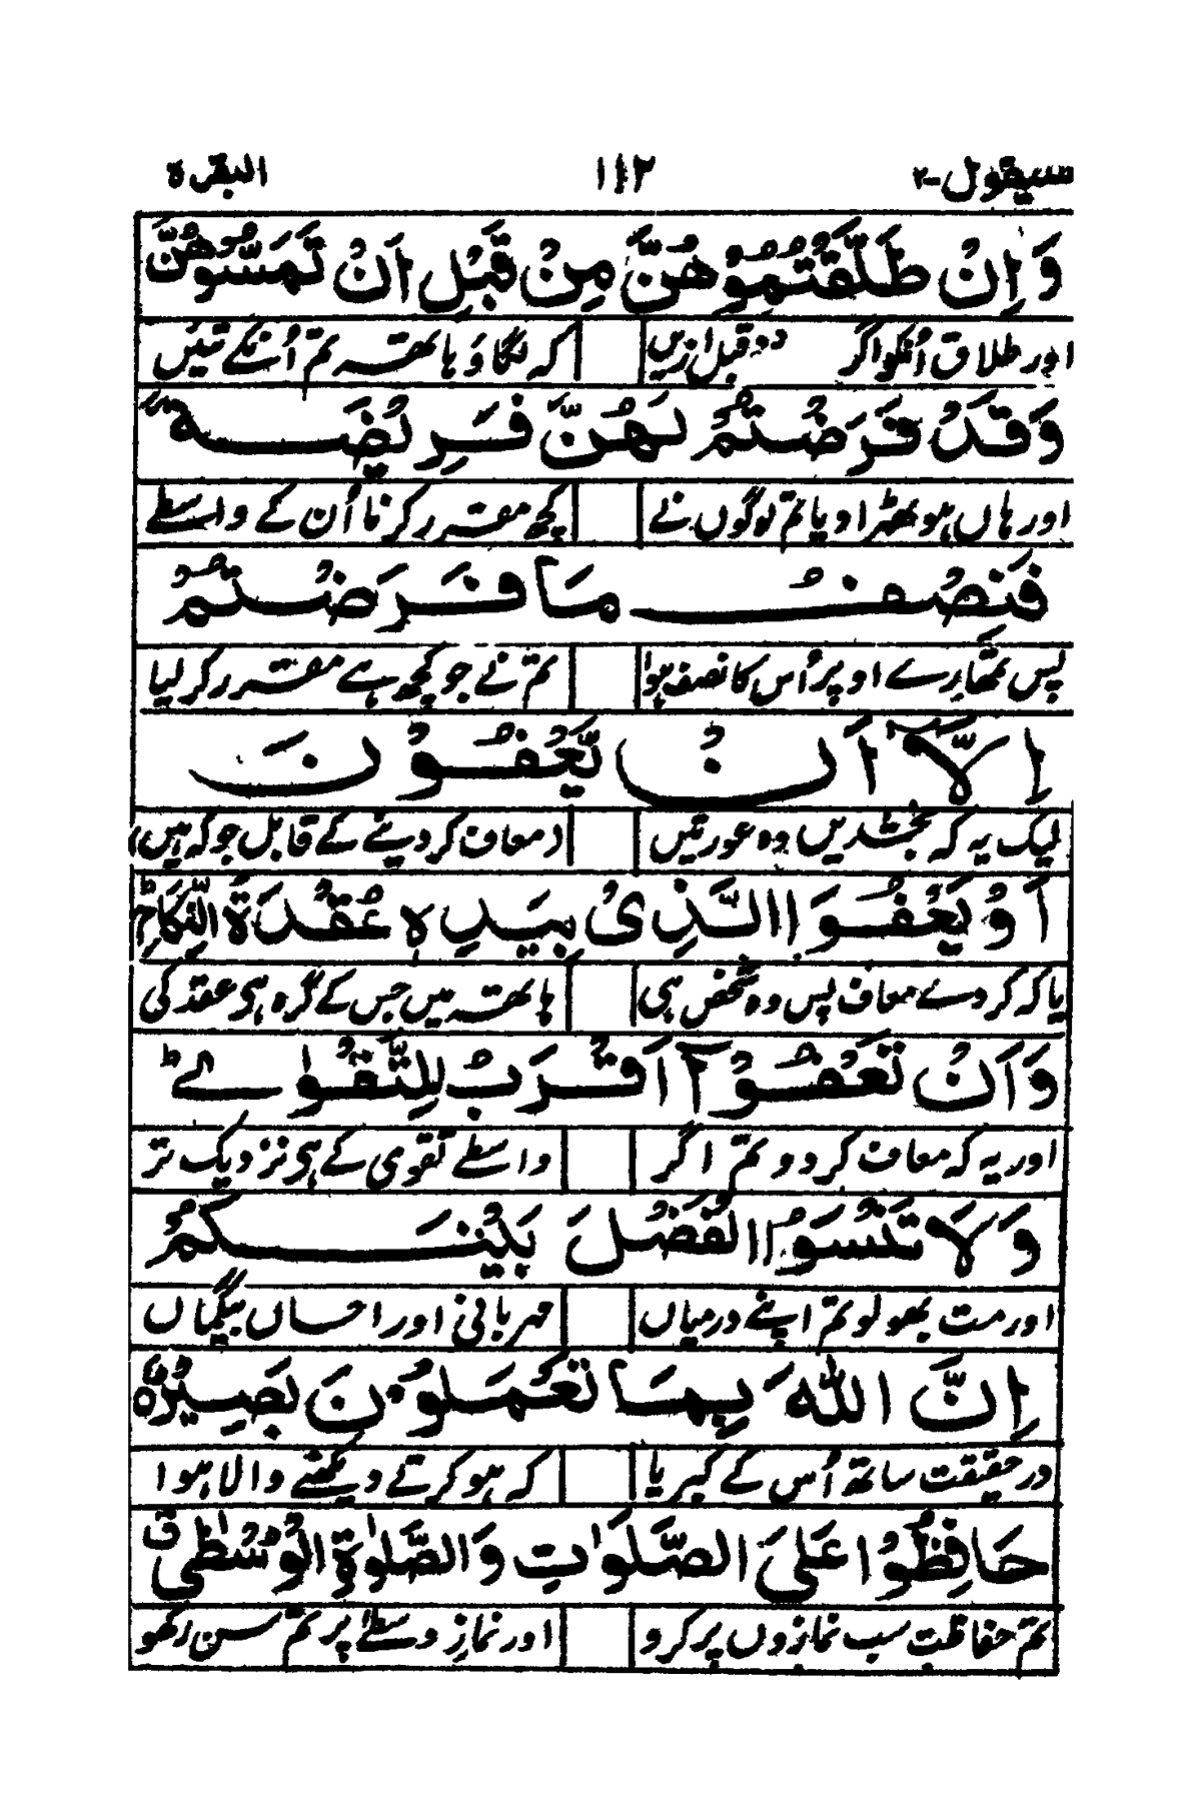 سیقول-۲ ۱۴۲ البقرة
وَاِنْ طَلَّقْتُمُوْهُنَّ مِنْ قَبْلِ اَنْ تَمَسُّوْهُنَّ
اور طلاق اُنکو اگر دو قبل ازیں کہ لگاؤ ہاتھ تم اُنکے تئیں
وَقَدْ فَرَضْتُمْ لَهُنَّ فَرِیْضَةً
اور ہاں ہو ٹھہرا دیا تم لوگوں نے کچھ مقرر کرنا اُن کے واسطے
فَنِصْفُ مَا فَرَضْتُمْ
پس تمھارے اوپر اُس کا نصف ہوا تم نے جو کچھ ہے مقرر کر لیا
اِلَّاۤ اَنْ یَّعْفُوْنَ
لیک یہ کہ بخشدیں وہ عورتیں (معاف کر دینے کے قابل جو کہ ہیں)
اَوْ یَعْفُوَا الَّذِیْ بِیَدِهٖ عُقْدَةُ النِّكَاحِؕ
یا کہ کر دے معاف پس وہ شخص ہی ہاتھ میں جس کے گرہ ہی عقد کی
وَاَنْ تَعْفُوْۤا اَقْرَبُ لِلتَّقْوٰىؕ
اور یہ کہ معاف کر دو تم اگر واسطے تقوی کے ہی نزدیک تر
وَلَا تَنْسَوُا الْفَضْلَ بَیْنَكُمْؕ
اور مت بھولو تم اپنے درمیاں مہربانی اور احساں بیگماں
اِنَّ اللهَ بِمَا تَعْمَلُوْنَ بَصِیْرٌ
در حقیقت ساتھ اُس کے کبریا کہ ہو کرتے دیکھنے والا ہوا
حَافِظُوْا عَلَى الصَّلَوٰتِ وَالصَّلٰوةِ الْوُسْطٰىۗ
تم حفاظت سب نمازوں پر کرو اور نمازِ وسطے پر تم سن رکھو